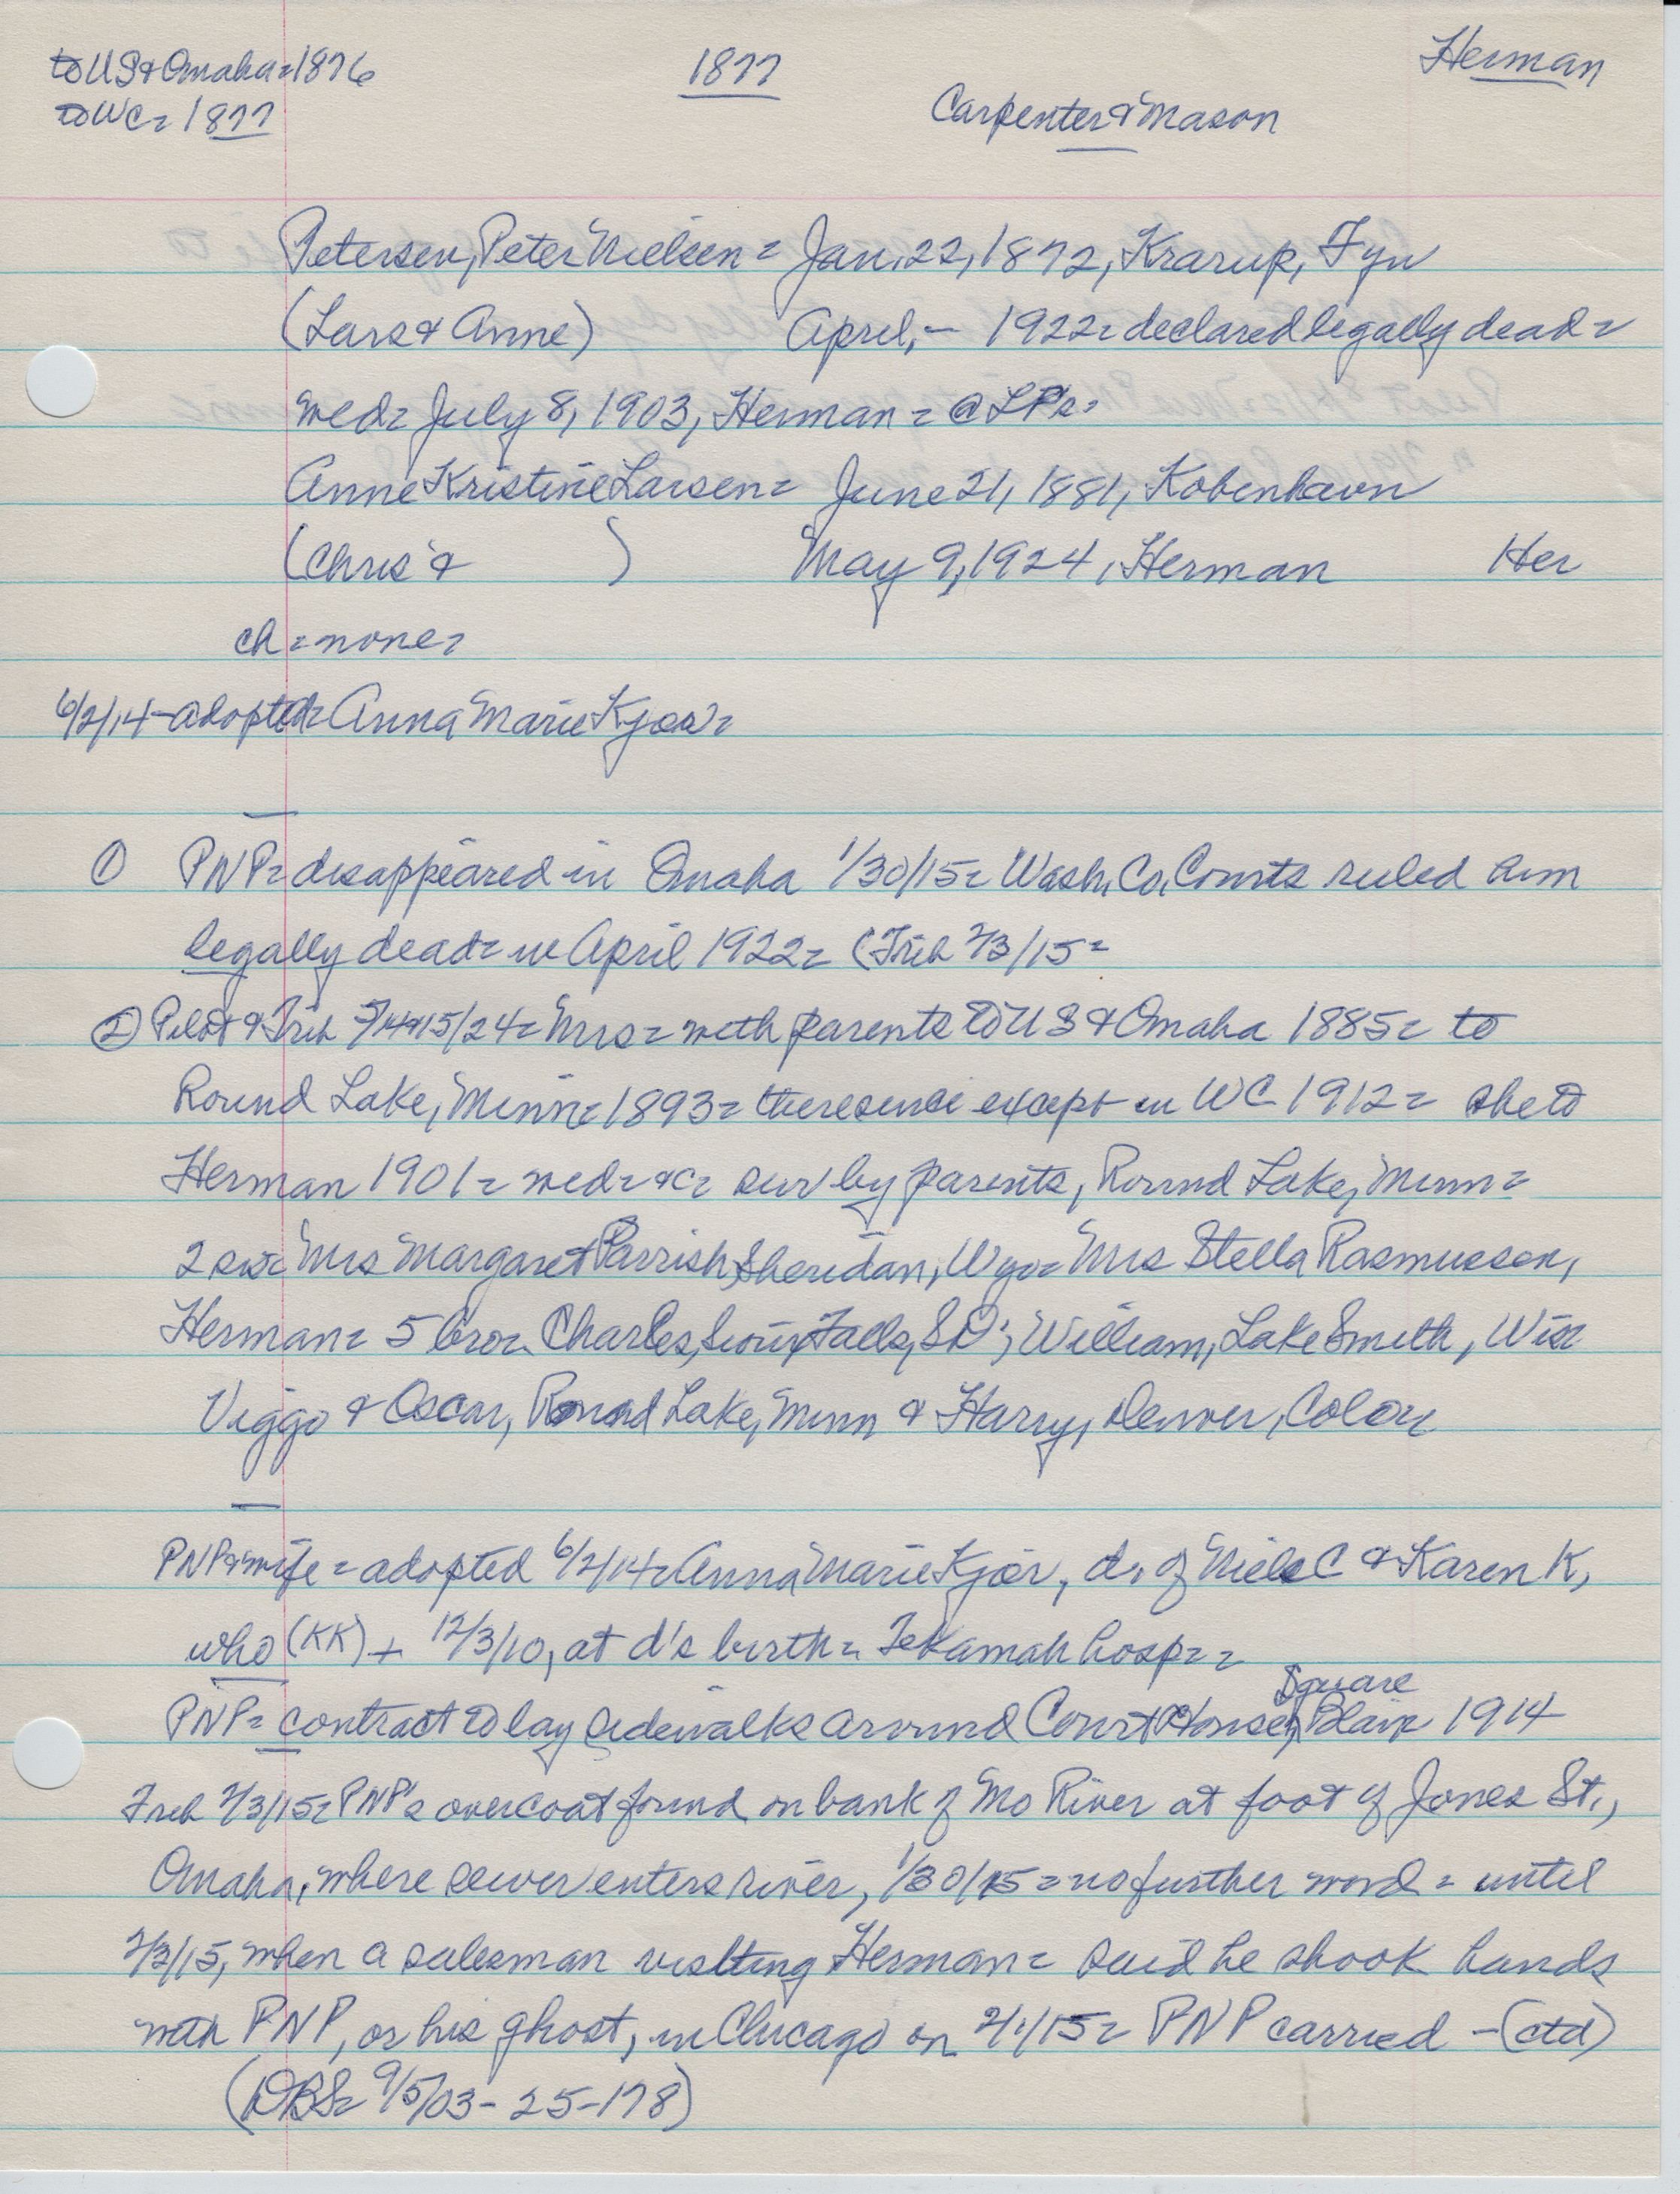 to US & Omaha = 1876
1877
Herman
to WC = 1877
Carpenter & Mason
Petersen, Peter Nielsen = Jan. 22, 1872, Krarup, Fyn
(Lars & Anne) April, — 1922 = declared legally dead =
wed = July 8, 1903, Herman = @ LPs =
Anne Kristine Larsen = June 21, 1881, Kobenhavn
(Chris & ) May 9, 1924, Herman Her
ch = none =
6/2/14 - adopted = Anna Marie Kjær =
① PNP = disappeared in Omaha 1/30/15 = Wash. Co. Courts ruled him
legally dead = in April 1922 = (Trib 2/3/15 =
② Pilot & Trib 5/14&15/24 = Mrs = with parents to US & Omaha 1885 = to
Round Lake, Minn = 1893 = there since except in WC 1912 = she to
Herman 1901 = wed = &c = sur by parents, Round Lake, Minn =
2 sis = Mrs Margaret Parrish, Sheridan, Wyo = Mrs Stella Rasmussen,
Herman = 5 bro = Charles, Sioux Falls, SD; William, Lake Smith, Wis =
Viggo & Oscar, Round Lake, Minn & Harry, Denver, Colo =
PNP & wife = adopted 6/2/14 = Anna Marie Kjær, d. of Niels C & Karen K,
who (KK) + 12/3/10, at d's birth = Tekamah hosp = =
Square
PNP = contract to lay sidewalks around Court House, Blair 1914
Trib 2/3/15 = PNP's overcoat found on bank of Mo River at foot of Jones St.,
Omaha, where sewer enters river, 1/30/15 = no further word = until
2/3/15, when a salesman visiting Herman = said he shook hands
with PNP, or his ghost, in Chicago on 2/1/15 = PNP carried - (ctd)
(DBS = 9/5/03 - 25-178)